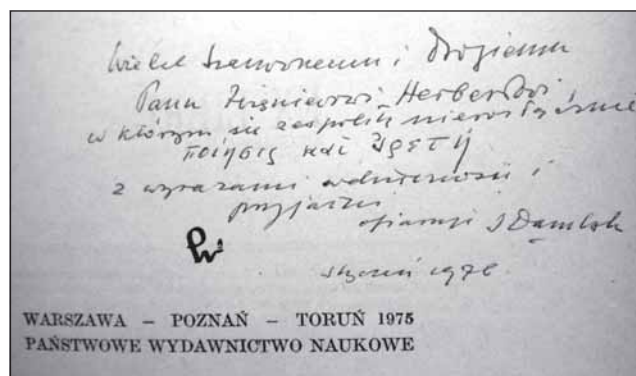 Wielce Szanownemu i Drogiemu
Panu Zbigniewowi Herbertowi,
w którym się zespoliły nierozłącznie
ποίησις καὶ ἀρετή
z wyrazami wdzięczności i
przyjaźni
ofiaruje I Dąmbska
styczeń 1976.
WARSZAWA – POZNAŃ – TORUŃ 1975
PAŃSTWOWE WYDAWNICTWO NAUKOWE